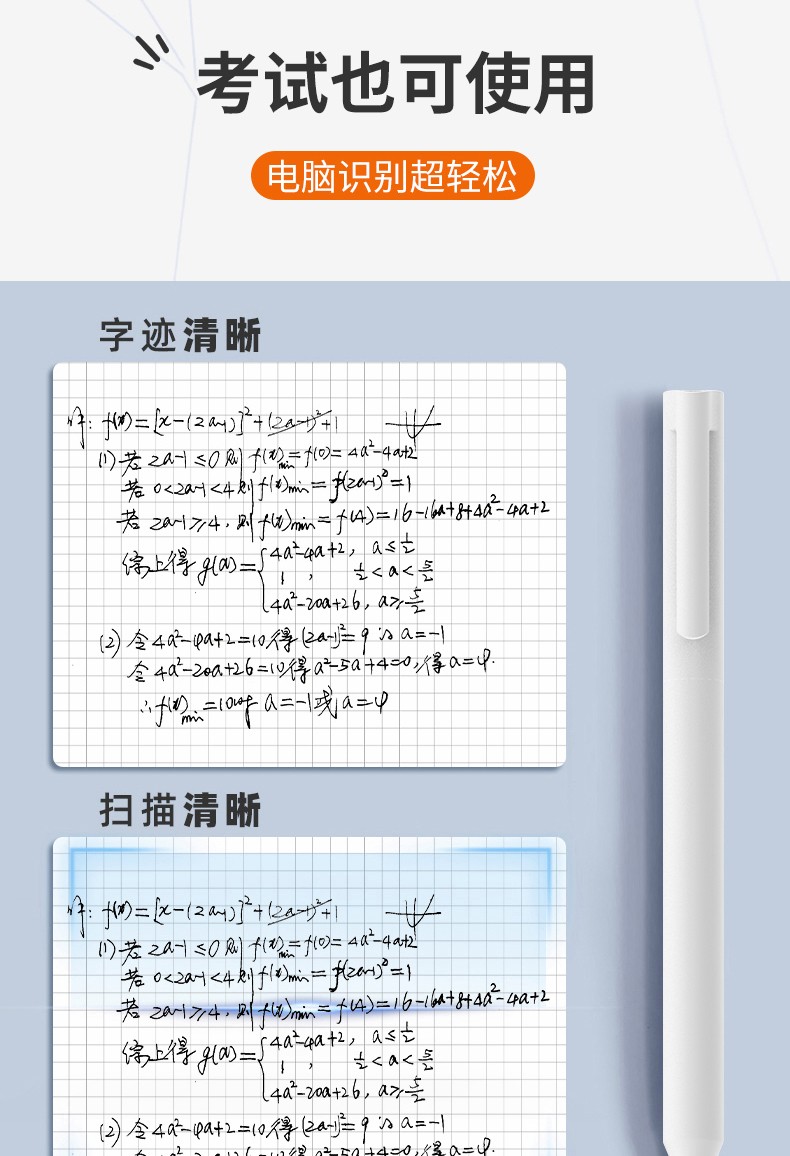 考试也可使用
电脑识别超轻松
字迹清晰
解: f(x)=[x-(2a-1)]²+(2a-1)²+1
(1) 若 2a-1≤0 则 f(x)min=f(0)=4a²-4a+2
若 0<2a-1<4 则 f(x)min=f(2a-1)=1
若 2a-1≥4, 则 f(x)min=f(4)=16-16a+8+4a²-4a+2
综上得 g(a)={4a²-4a+2, a≤1/2
1, 1/2<a<5/2
4a²-20a+26, a≥5/2
(2) 令 4a²-4a+2=10 得 (2a-1)²=9 ∴ a=-1
令 4a²-20a+26=10 得 a²-5a+4=0, 得 a=4.
∴ f(x)min=10时 a=-1 或 a=4
扫描清晰
解: f(x)=[x-(2a-1)]²+(2a-1)²+1
(1) 若 2a-1≤0 则 f(x)min=f(0)=4a²-4a+2
若 0<2a-1<4 则 f(x)min=f(2a-1)=1
若 2a-1≥4, 则 f(x)min=f(4)=16-16a+8+4a²-4a+2
综上得 g(a)={4a²-4a+2, a≤1/2
1, 1/2<a<5/2
4a²-20a+26, a≥5/2
(2) 令 4a²-4a+2=10 得 (2a-1)²=9 ∴ a=-1